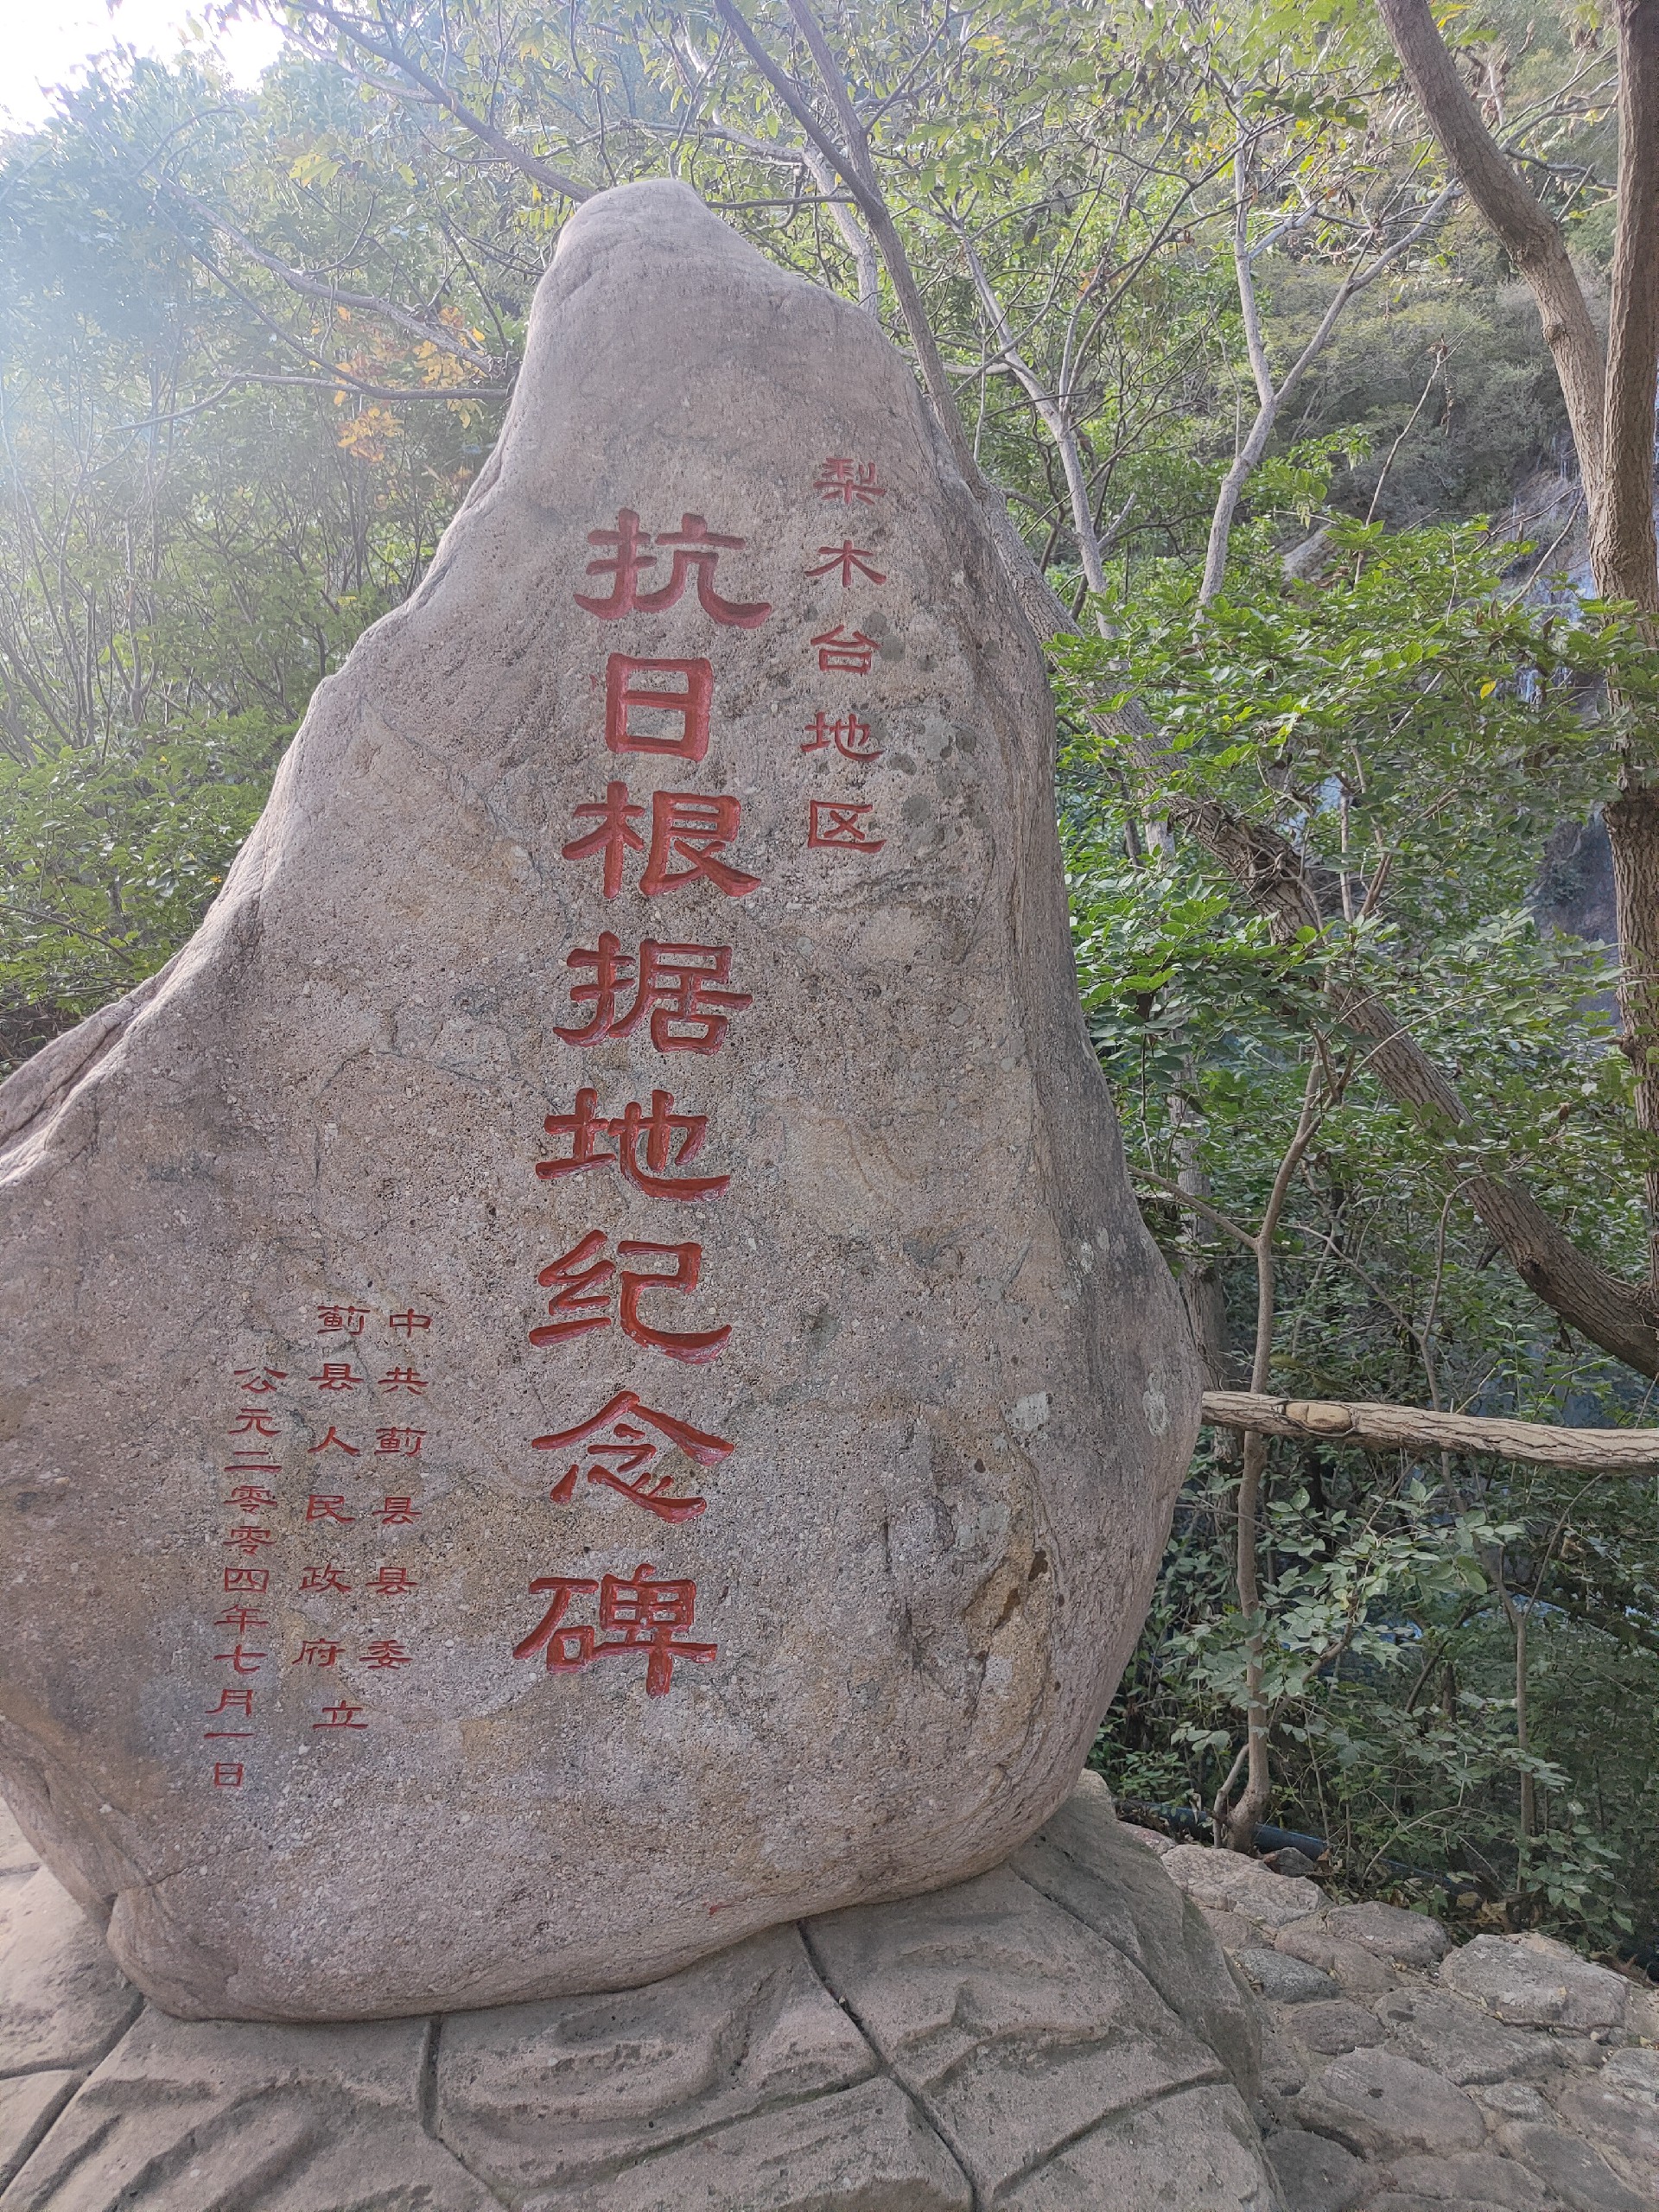 梨木台地区
抗日根据地纪念碑
中共蓟县县委
蓟县人民政府立
公元二零零四年七月一日